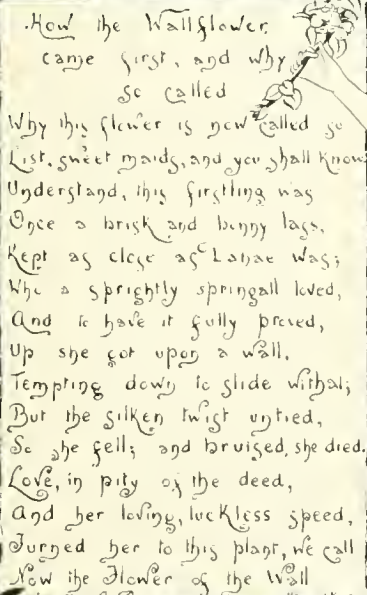 How the Wallflower
came first, and why
so called
Why this flower is now called so
List, sweet maids, and you shall know
Understand, this firstling was
Once a brisk and bonny lass,
Kept as close as Danae was;
Who a sprightly springall loved,
And to have it fully proved,
Up she got upon a wall,
Tempting down to slide withal;
But the silken twist untied,
So she fell; and bruised, she died.
Love, in pity of the deed,
And her loving, luckless speed,
Turned her to this plant, we call
Now the Flower of the Wall